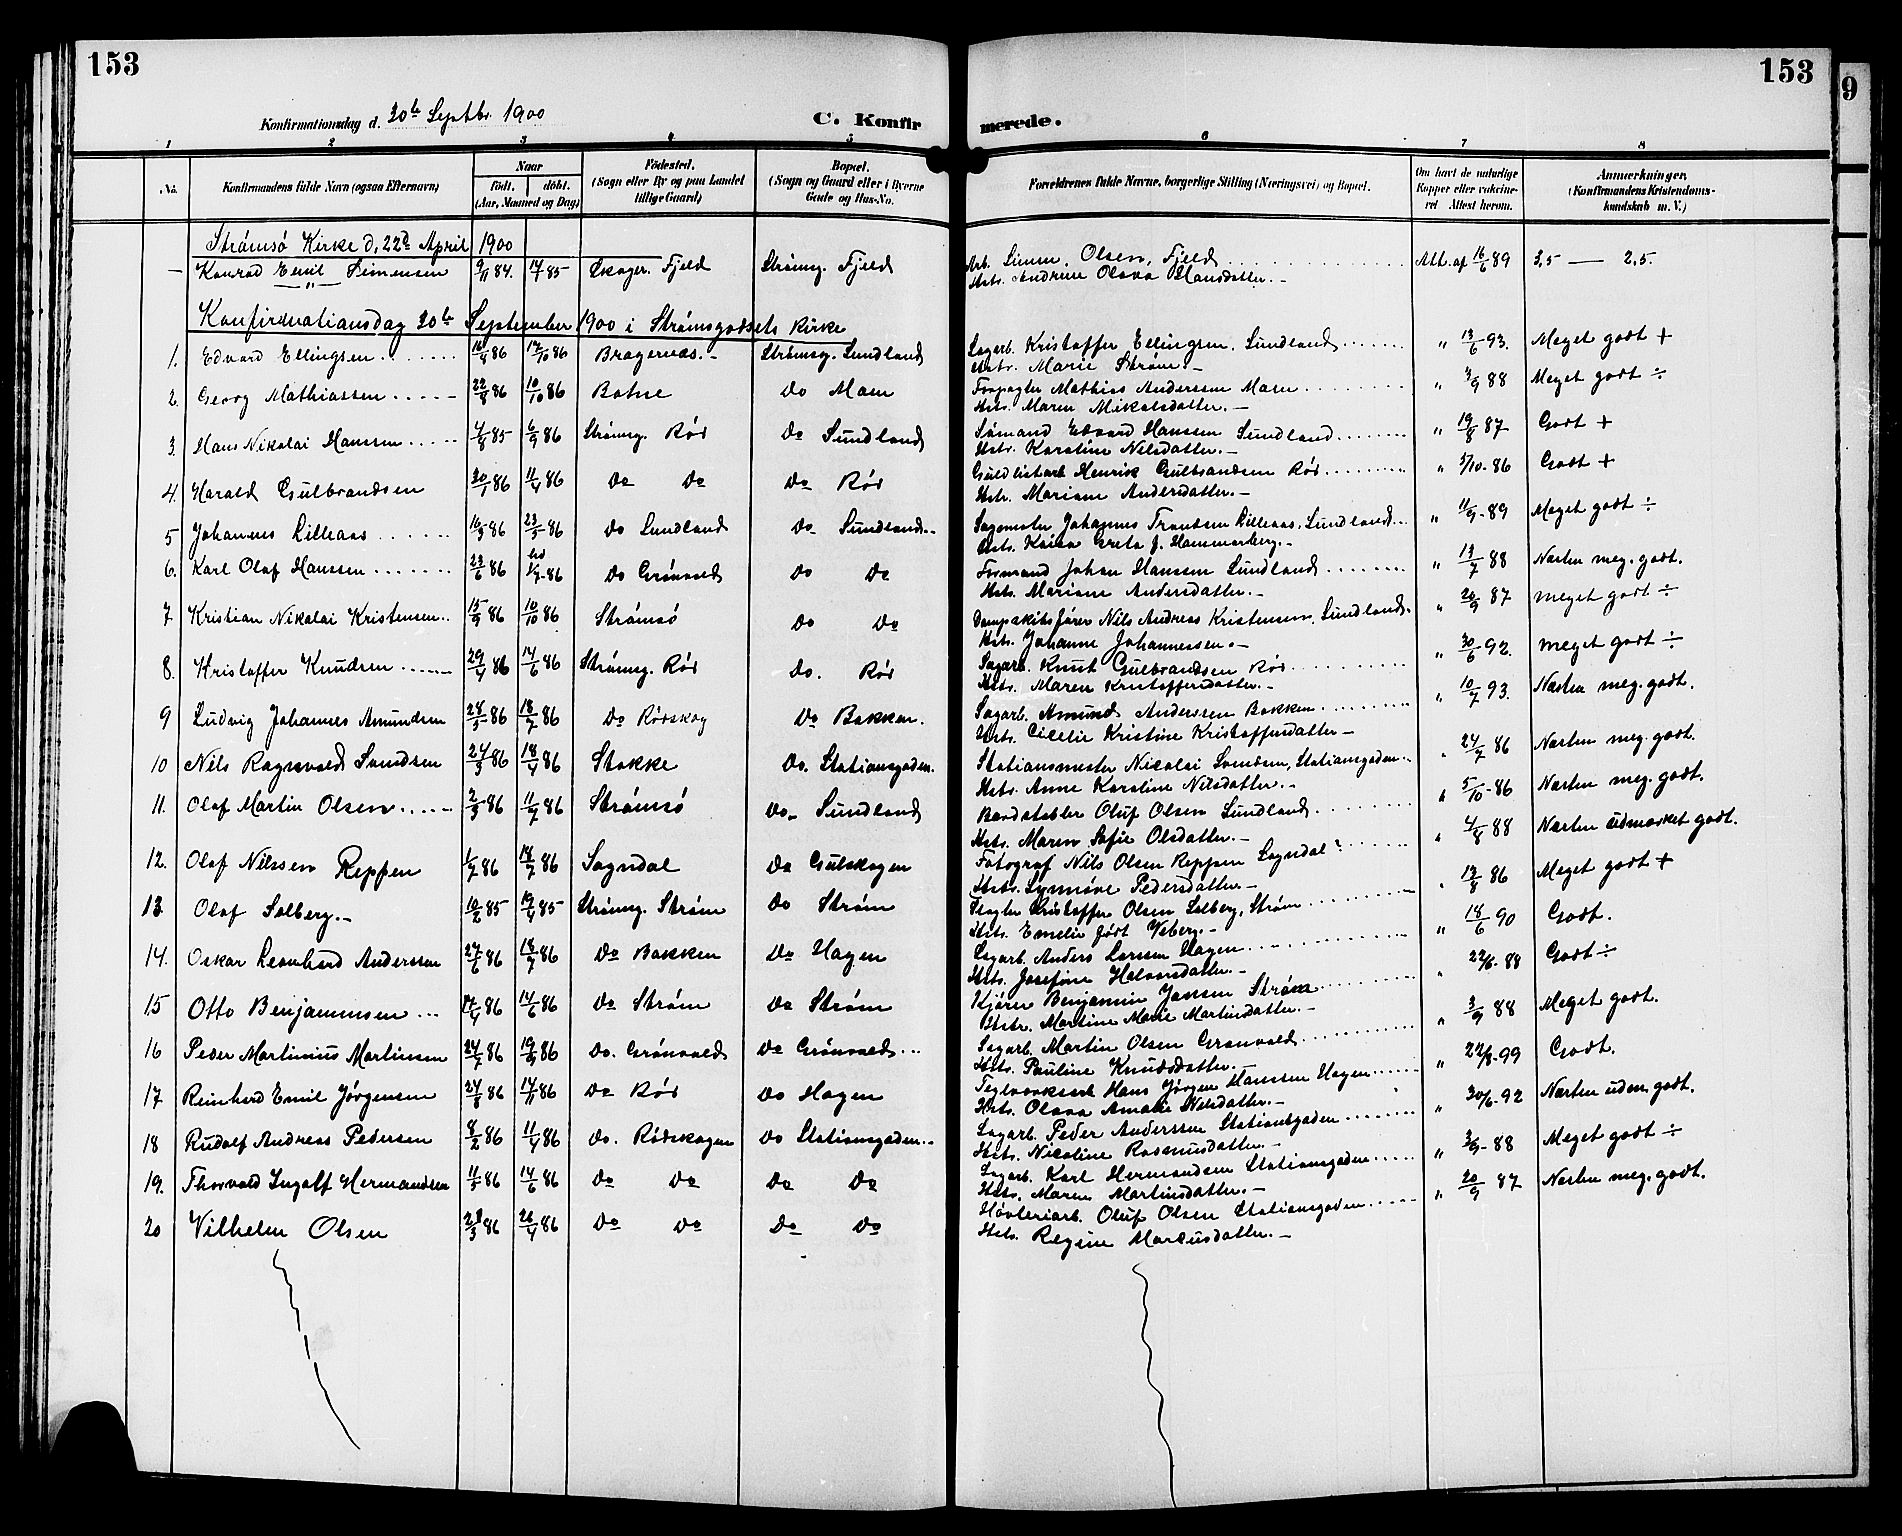 153
153
9
Konfirmationsdag d. 30te Septbr. 1900
C. Konfir
merede.
1 2 3 4 5 6 7 8
No.
Konfirmandens fulde Navn (ogsaa Efternavn)
Naar
født. døbt.
(Aar, Maaned og Dag)
Fødested.
(Sogn eller By og paa Landet
tillige Gaard)
Bopæl.
(Sogn og Gaard eller i Byerne
Gade og Hus-No.
Forældrenes fulde Navne, borgerlige Stilling (Næringsvei) og Bopæl.
Om havt de naturlige
Kopper eller vaksine-
ret Attest herom.
Anmerkninger,
(Konfirmandens Kristendoms-
kundskab m. V.)
Strømsø Kirke d. 22de April 1900
— Konrad Emil Simensen 9/11 84. 85 Skoger. Fjeld Strømsg. Fjeld Arb. Simen Olsen, Fjeld Att. af 16/6 89 3,5 — 2,5.
Hstr. Andrine Olava Hansdatter. —
Konfirmationsdag 30te September 1900 i Strømsgodsets Kirke
1. Edvard Ellingsen 86 17/10 86 Bragernæs. — Strømsg. Sundland Sagarb. Kristoffer Ellingsen, Sundland " 13/6 93. Meget godt +
Hstr. Marie Strøm. —
2. Georg Mathiassen 22/8 86 10/10 86 Botne do Maen Forpagter Mathias Anderssen Maen " 3/9 88 Meget godt ÷
Hstr. Maren Mikalsdatter. —
3. Hans Nikolai Hanssen 85 6/9 86 Strømsg. Rød do Sundland Sømand Edvard Hanssen Sundland " 19/8 87 Godt +
Hstr. Karoline Nilsdatter. —
4. Harald Gulbrandsen 30/1 86 11/4 86 do do do Rød Guldlistarb. Henrik Gulbrandsen Rød " 5/10-86 Godt +
Hstr. Mariane Andersdatter. —
5 Johannes Lilleaas 10/3 86 23/5 86 do Sundland do Sundland Sagmester Johannes Trondsen Lilleaas, Sundland " 11/9-89 Meget godt ÷
Hstr. Kaisa Greta J. Hammarberg. —
6. Karl Olaf Hanssen 23/6 86 86 do Grønvold do do Formand Johan Hanssen Sundland " 13/7 88 Næsten meg. godt.
Hstr. Mariane Andersdatter. —
7 Kristian Nikolai Kristensen 86 10/10 86 Strømsø do do Dampskibsfører Nils Andreas Kristensen, Sundland " 20/9 87 meget godt ÷
Hstr. Johanne Johannessen. —
8. Kristoffer Knudsen 29/4 86 14/6 86 Strømsg. Rød do. Rød Sagarb. Knut Gulbrandsen Rød " 30/6 92. meget godt ÷
Hstr. Maren Kristoffersdatter. —
9 Ludvig Johannes Amundsen 28/5 86 18/7 86 do Rødskog do Bakken. Sagarb. Amund Anderssen Bakken " 10/7 93. Næsten meg. godt.
Hstr. Cicelie Kristine Kristoffersdatter —
10 Nils Ragnvald Svendsen 24/3 86 18/4 86 Stokke do. Stationsgaden. Stationsmester Nicolai Svendsen, Stationsgaden " 24/7 86 Næsten meg. godt.
Hstr. Anne Karoline Nilsdatter. —
11. Olaf Martin Olsen 2/3 86 11/7 86 Strømsø do. Sundland Bordstabler Oluf Olsen Sundland " 5/10-86 Næsten meg. godt.
Hstr. Maren Sofie Olsdatter. —
12. Olaf Nilssen Reppen 1/7 86 18/7 86 Sogndal do Gulskogen Fotograf Nils Olsen Reppen Sogndal " 4/8 88 Næsten udmærket godt.
Hstr. Synnøve Pedersdatter —
13. Olaf Solberg. — 10/2 85 19/4 85 Strømsg. Strøm do Strøm Kristoffer Olsen Solberg, Strøm " 13/8 86 Meget godt +
Hstr. Emelie født Viberg. —
14. Oskar Leonhard Anderssen 27/6 86 18/7 86 do Bakken do Hagen Sagarb. Anders Larssen Hagen " 18/6 90 Godt.
Hstr. Josefine Halvorsdatter. —
15 Otto Benjaminsen 86 14/6 86 do Strøm do Strøm Kjører Benjamin Jansen Strøm " 22/6-88 Godt ÷
Hstr. Martine Marie Martinsdatter. —
16 Peder Martinius Martinsen 24/7 86 19/9 86 do. Grønvold do Grønvold Sagarb. Martin Olsen Grønvold " 3/9 88 Meget godt.
Hstr. Pauline Knudsdatter. —
17 Reinhard Emil Jørgensen 24/8 86 14/11 86 do Rød do Hagen Teglverksarb. Hans Jørgen Hanssen Hagen " 22/8-99 Godt.
Hstr. Olava Amalie Nilsdatter. —
18 Rudolf Andreas Pedersen 8/2 86 11/4 86 do. Rødskogen do Stationsgaden Sagarb. Peder Anderssen Stationsgaden " 30/6-92 Næsten udm. godt.
Hstr. Nicoline Rasmusdatter. —
19. Thorvald Ingolf Hermandsen 11/5 86 14/6 86 do do do do Sagarb. Karl Hermandsen Stationsgaden " 3/9-88 Meget godt ÷
Hstr. Maren Martinsdatter. —
20 Vilhelm Olsen 86 26/4 86 do do do do Høvleriarb. Oluf Olsen Stationsgaden " 20/9 87 Næsten meg. godt.
Hstr. Regine Marcusdatter. —